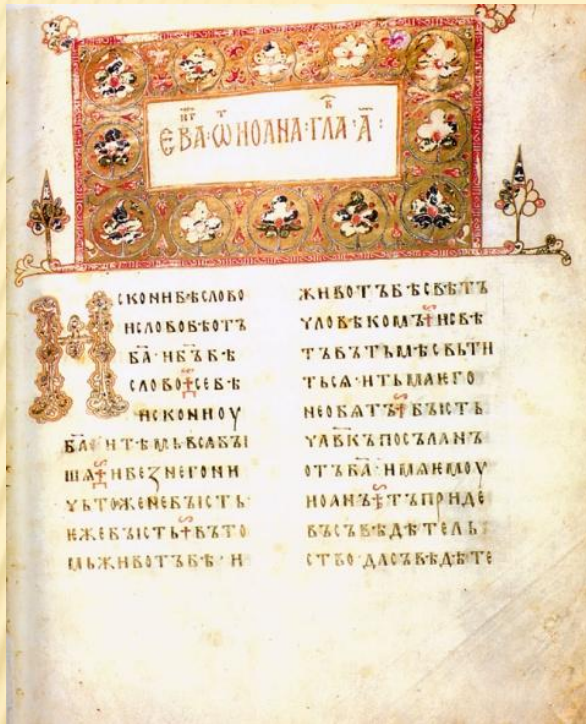 ЕВА·ѾИОАНА·ГЛА·А҃:
ИСКОНИБѢСЛОВО
ИСЛОВОБѢОТЪ
БА҃·ИБЪ҃БѢ
СЛОВО✝СЕБѢ
ИСКОНИОУ
БА҃·ИТѢМЬВСѦБЫ
ШѦ✝ИБЕЗНЕГОНИ
ЧЬТОЖЕНЕБЫСТЬ·
ЕЖЕБЫСТЬ✝ВЪТО
МЬЖИВОТЪБѢ·И
ЖИВОТЪБѢСВѢТЪ
ЧЛОВѢКОМЪ✝ИСВѢ
ТЪВЪТЬМѢСВЬТИ
ТЬСѦ·ИТЬМАѤГО
НЕОБѦТЪ✝БЫСТЬ
ЧЛ҃ВКЪПОСЪЛАНЪ
ОТЪБА҃·ИМѦѤМОУ
ИОАНЪ✝ТЪПРИДЕ
ВЪСЪВѢДѢТЕЛЬ
СТВО·ДАСЪВѢДѢТЕ